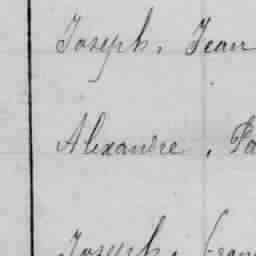 Joseph, Jean
Alexandre, Pa
Joseph, Fran